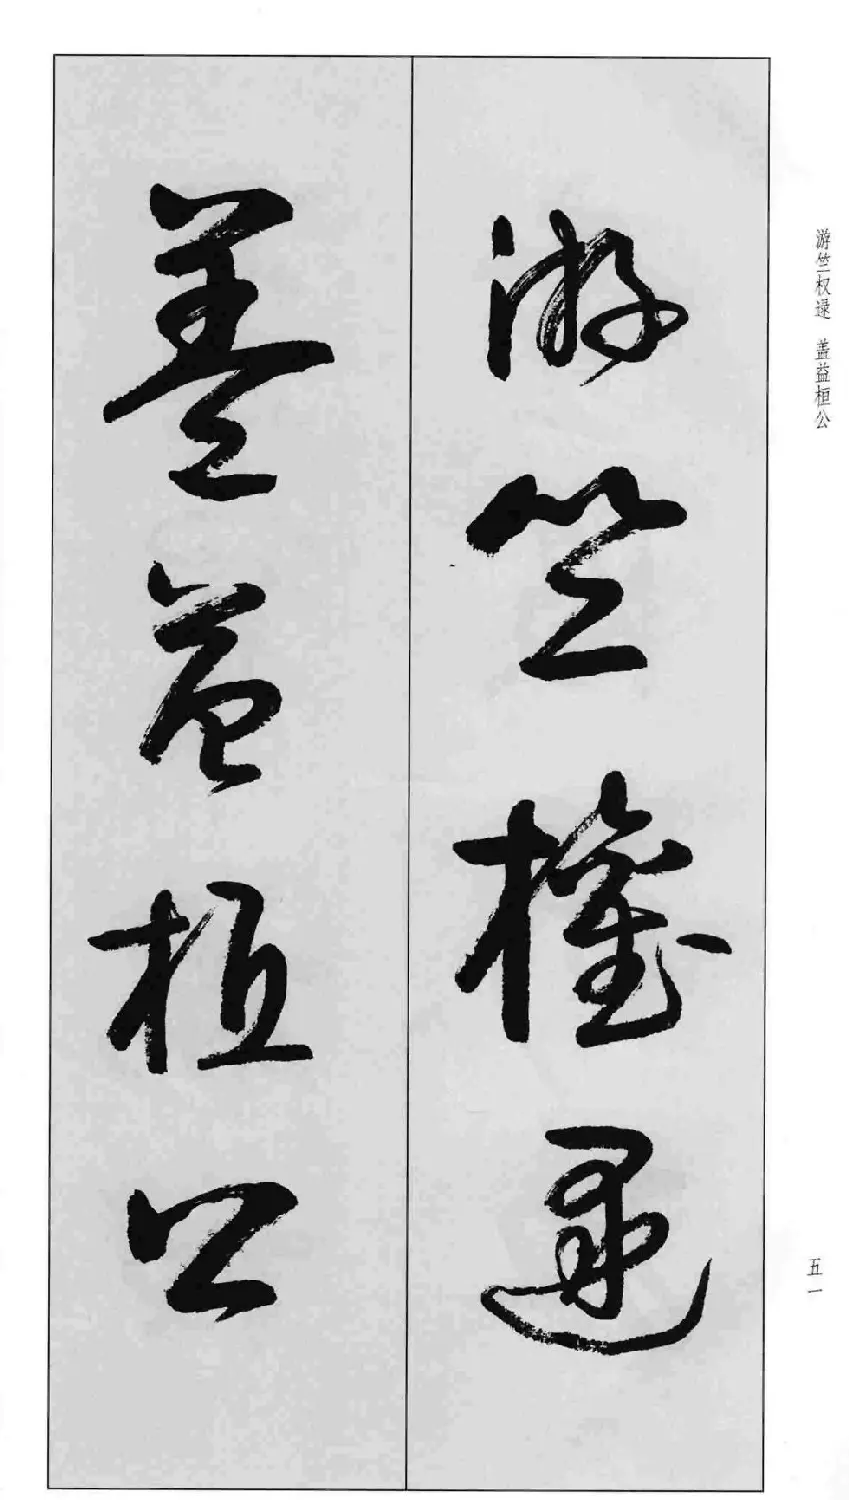 游竺权逯 盖益桓公
游竺權逯
盖益桓公
五一